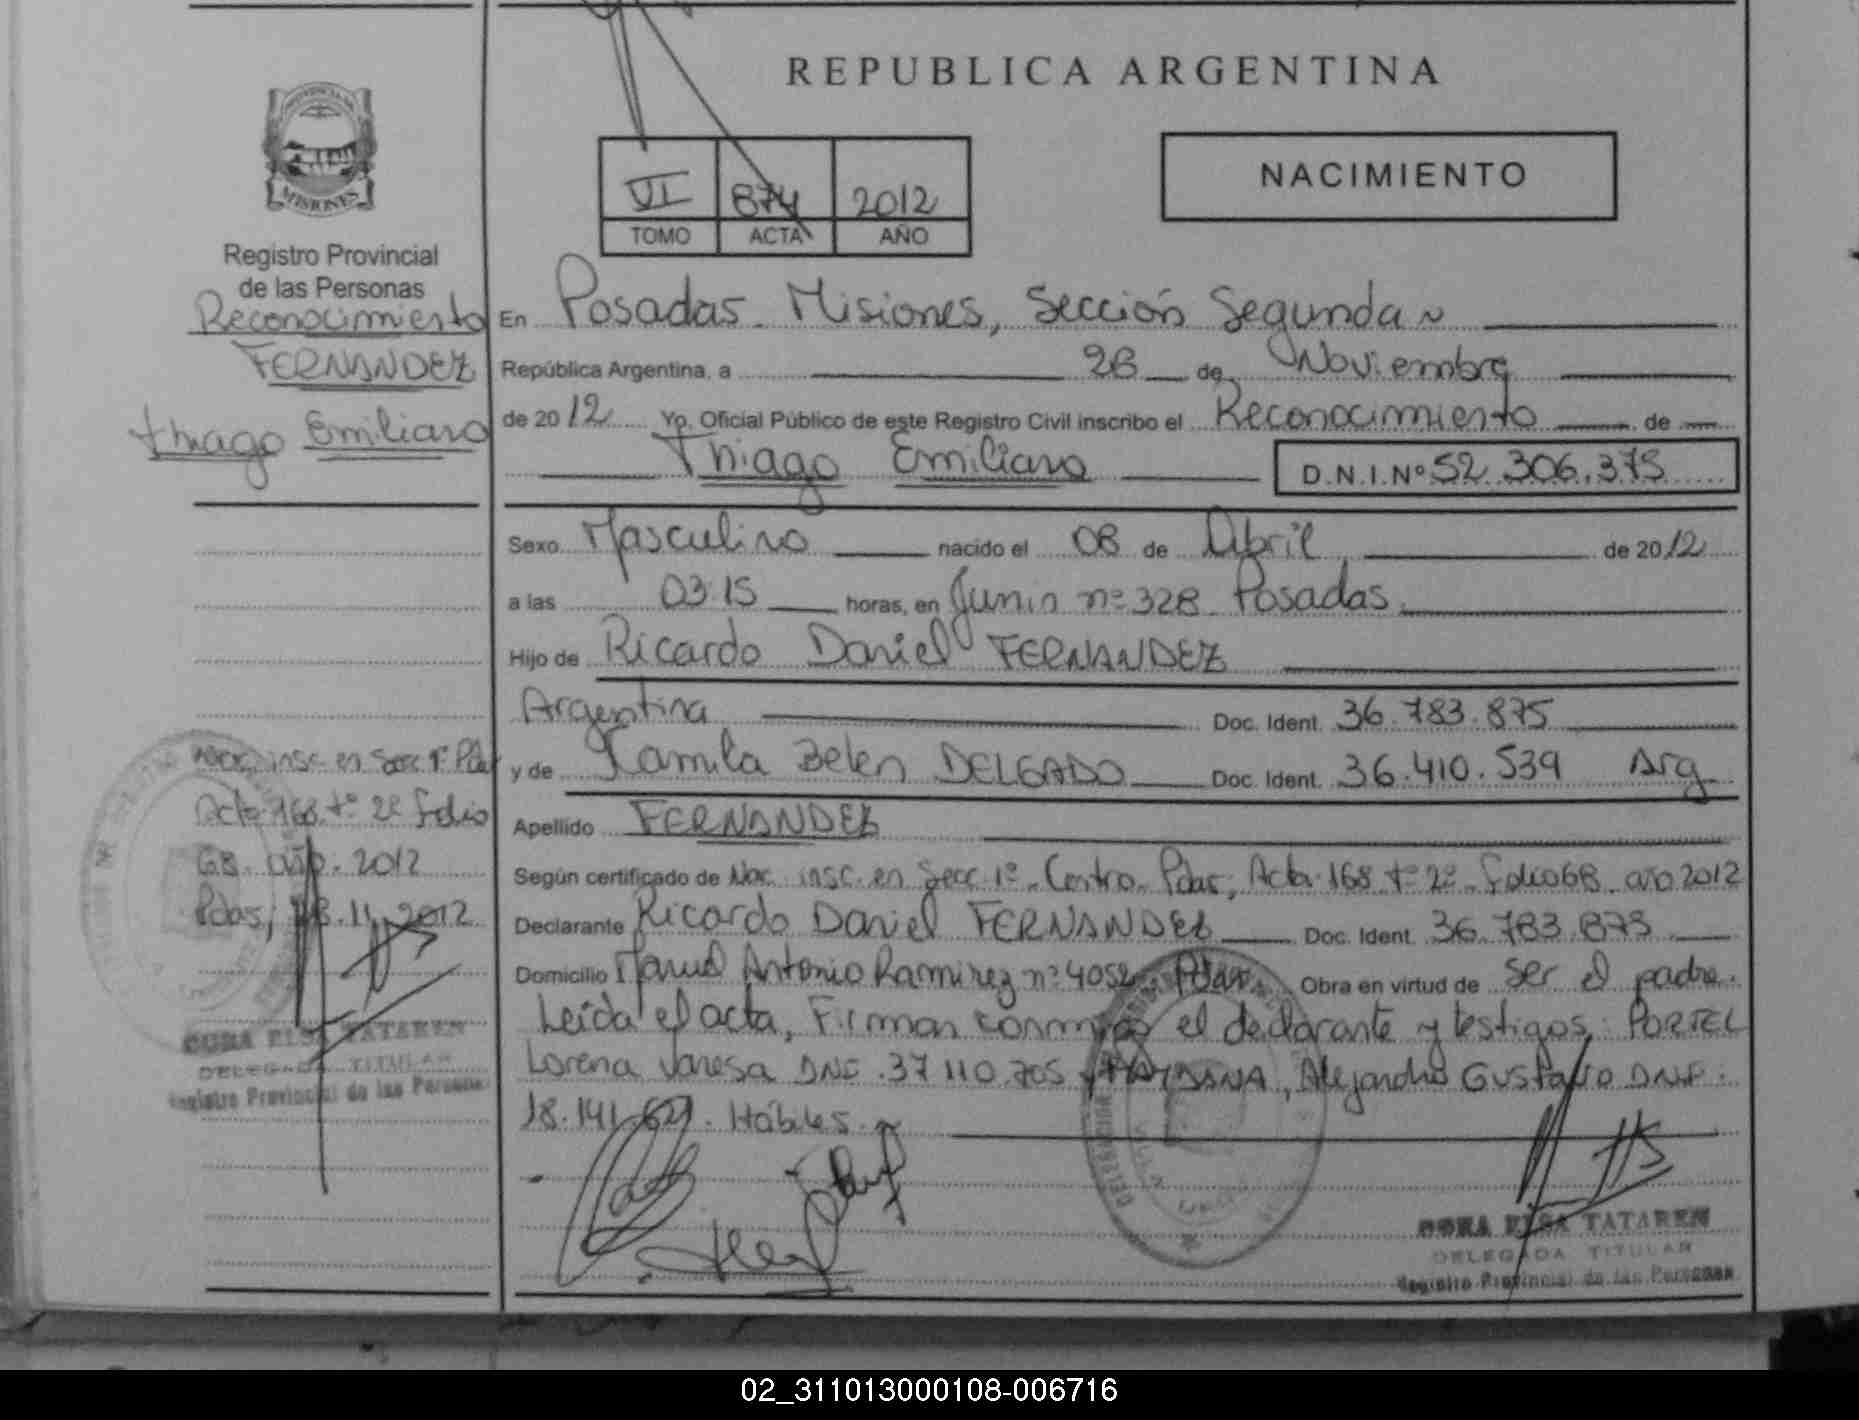 REPUBLICA ARGENTINA
PROVINCIA DE
MISIONES
VI 874 2012
TOMO ACTA AÑO
NACIMIENTO
Registro Provincial
de las Personas
Reconocimiento
FERNANDEZ
Thiago Emiliano
En Posadas Misiones, Sección Segunda
República Argentina, a 28 de Noviembre
de 2012 Yo, Oficial Público de este Registro Civil inscribo el Reconocimiento de
Thiago Emiliano D.N.I.Nº 52.306.375
Sexo Masculino nacido el 08 de Abril de 2012
a las 03:15 horas, en Junin nº 328 Posadas
Hijo de Ricardo Daniel FERNANDEZ
Argentina Doc. Ident. 36.783.875
y de Kamila Belen DELGADO Doc. Ident. 36.410.539 Arg
Apellido FERNANDEZ
Según certificado de Nac. insc. en Secc 1º Centro Pdas, Acta 168 tº 2º folio 68 año 2012
Declarante Ricardo Daniel FERNANDEZ Doc. Ident. 36.783.875
Domicilio Manuel Antonio Ramirez nº 4052 Pdas Obra en virtud de ser el padre.
Leída el acta, Firman conmigo el declarante y testigos: PORTEL
Lorena Vanesa DNI 37.110.705 y Alejandro Gustavo DNI
18.141.621. Hábiles.
Nac. insc. en Secc 1º Pdas
Acta 168 tº 2º folio
68 año 2012
Pdas, 28.11.2012
CORA ELSA TATAREN
DELEGADA TITULAR
Registro Provincial de las Personas
CORA ELSA TATAREN
DELEGADA TITULAR
Registro Provincial de las Personas
02_311013000108-006716